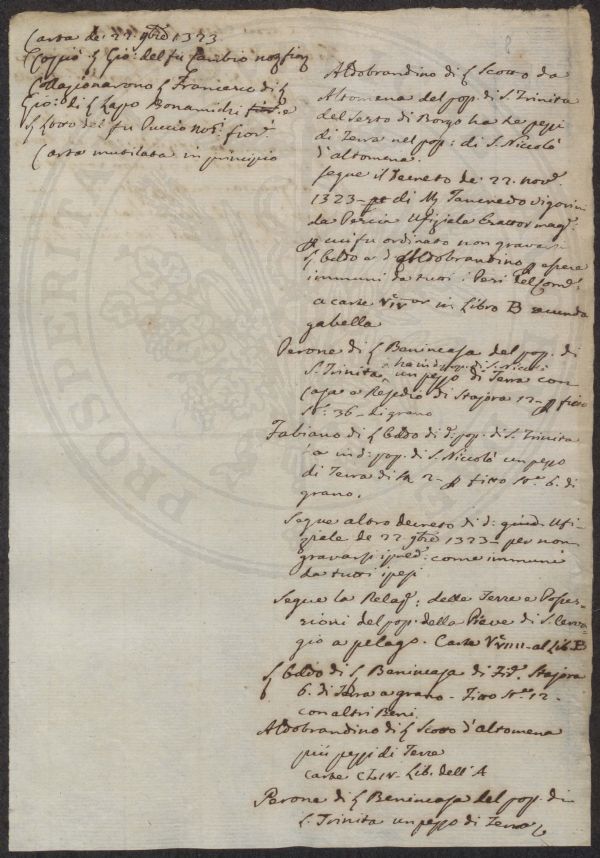 Carta de' 22. 9bre 1323
Copiò ſ Gio: del fu
Collazionarono ſ Francesco di ſ
Gio: di ſ Lapo Bonamichi fior. e
ſ del fu Puccio Not. fior.
Carta mutilata in principio
8
Aldobrandino di ſ Scotto da
Altomena del pop. di S. Trinita
del Sesto di Borgo ha tre pezzi
di Terra nel pop: di S. Niccolò
d'altomena.
Segue il Decreto de' 22. nov.
1323 di M Tancredo
da Ufiziale
cui fu ordinato non gravarsi
ſ Baldo e d. Aldobrandino p essere
immuni da tutti i Pesi del Com.
a carte in Libro B secunda
gabella
Perone di ſ Benincasa del pop. di
S. Trinita ha in d. pop. di S. Niccolò un pezzo di Terra con
Casa a di Stajora 12 - p fitto
St. 36 - di grano
Fabiano di ſ Baldo di d. pop. di S. Trinita
ha in d. pop. di S. Niccolò un pezzo
di Terra di 2 - p fitto St. 6. di
grano.
Segue altro decreto di d: giud. Ufi-
ziale de 22 9bre 1323 - per non
gravarsi come immuni
da tutti i pesi
Segue la Relaz: delle Terre e Posses-
sioni del pop. della Pieve di S.
gio a pelago. Carte al Lib. B
ſ Baldo di ſ Benincasa di Stajora
6. di Terra a grano - Fitto St. 12 -
con altri Beni.
Aldobrandino di ſ Scotto d'altomena
più pezzi di Terre
carte Lib. dell'A
Perone di ſ Benincasa del pop. di
S. Trinita un pezzo di Terra